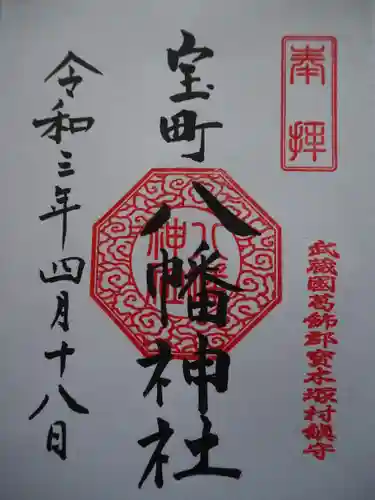 奉拝
武蔵國葛飾郡寳木塚村鎮守
宝町八幡神社
八幡神社
令和三年四月十八日